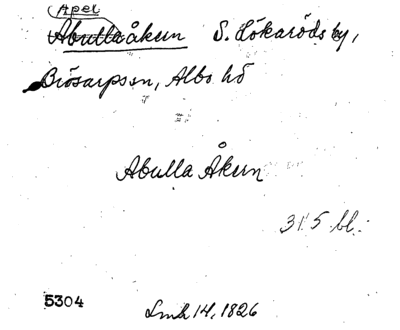 Apel
Abullaåkern S. Lökaröds by,
Brösarpssn, Albo hd
Abulla Åkern
315 bl.
5304
Lmh 14, 1826